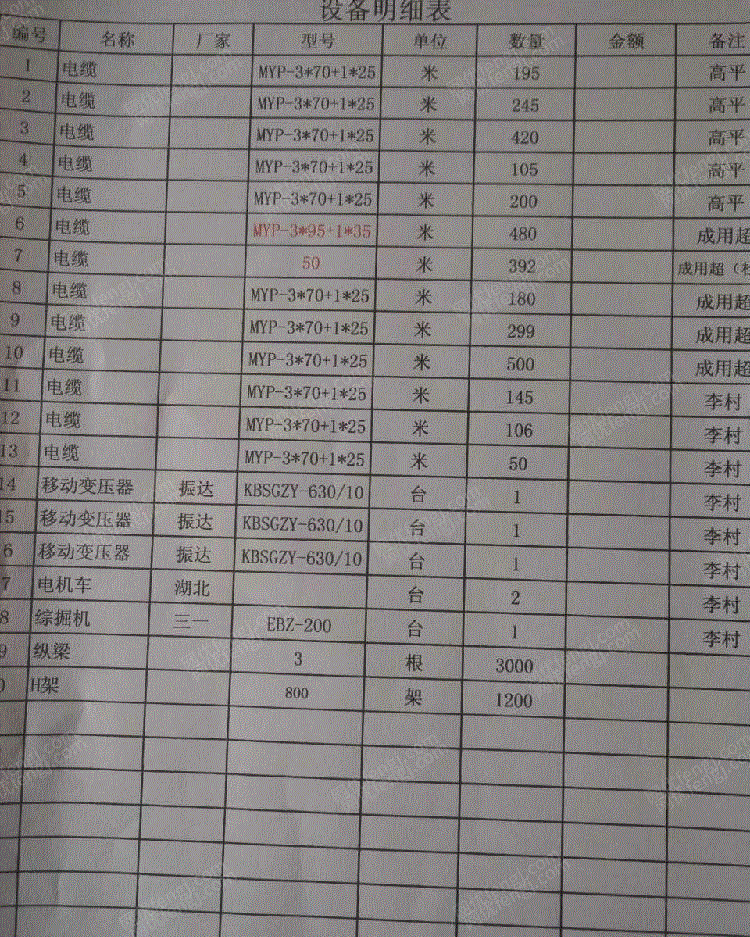 设备明细表
编号 名称 厂家 型号 单位 数量 金额 备注
1 电缆 MYP-3*70+1*25 米 195 高平
2 电缆 MYP-3*70+1*25 米 245 高平
3 电缆 MYP-3*70+1*25 米 420 高平
4 电缆 MYP-3*70+1*25 米 105 高平
5 电缆 MYP-3*70+1*25 米 200 高平
6 电缆 MYP-3*95+1*35 米 480 成用超
7 电缆 50 米 392 成用超（
8 电缆 MYP-3*70+1*25 米 180 成用超
9 电缆 MYP-3*70+1*25 米 299 成用超
10 电缆 MYP-3*70+1*25 米 500 成用超
11 电缆 MYP-3*70+1*25 米 145 李村
12 电缆 MYP-3*70+1*25 米 106 李村
13 电缆 MYP-3*70+1*25 米 50 李村
14 移动变压器 振达 KBSGZY-630/10 台 1 李村
15 移动变压器 振达 KBSGZY-630/10 台 1 李村
6 移动变压器 振达 KBSGZY-630/10 台 1 李村
7 电机车 湖北 台 2 李村
8 综掘机 三一 EBZ-200 台 1 李村
9 纵梁 3 根 3000
0 H架 800 架 1200